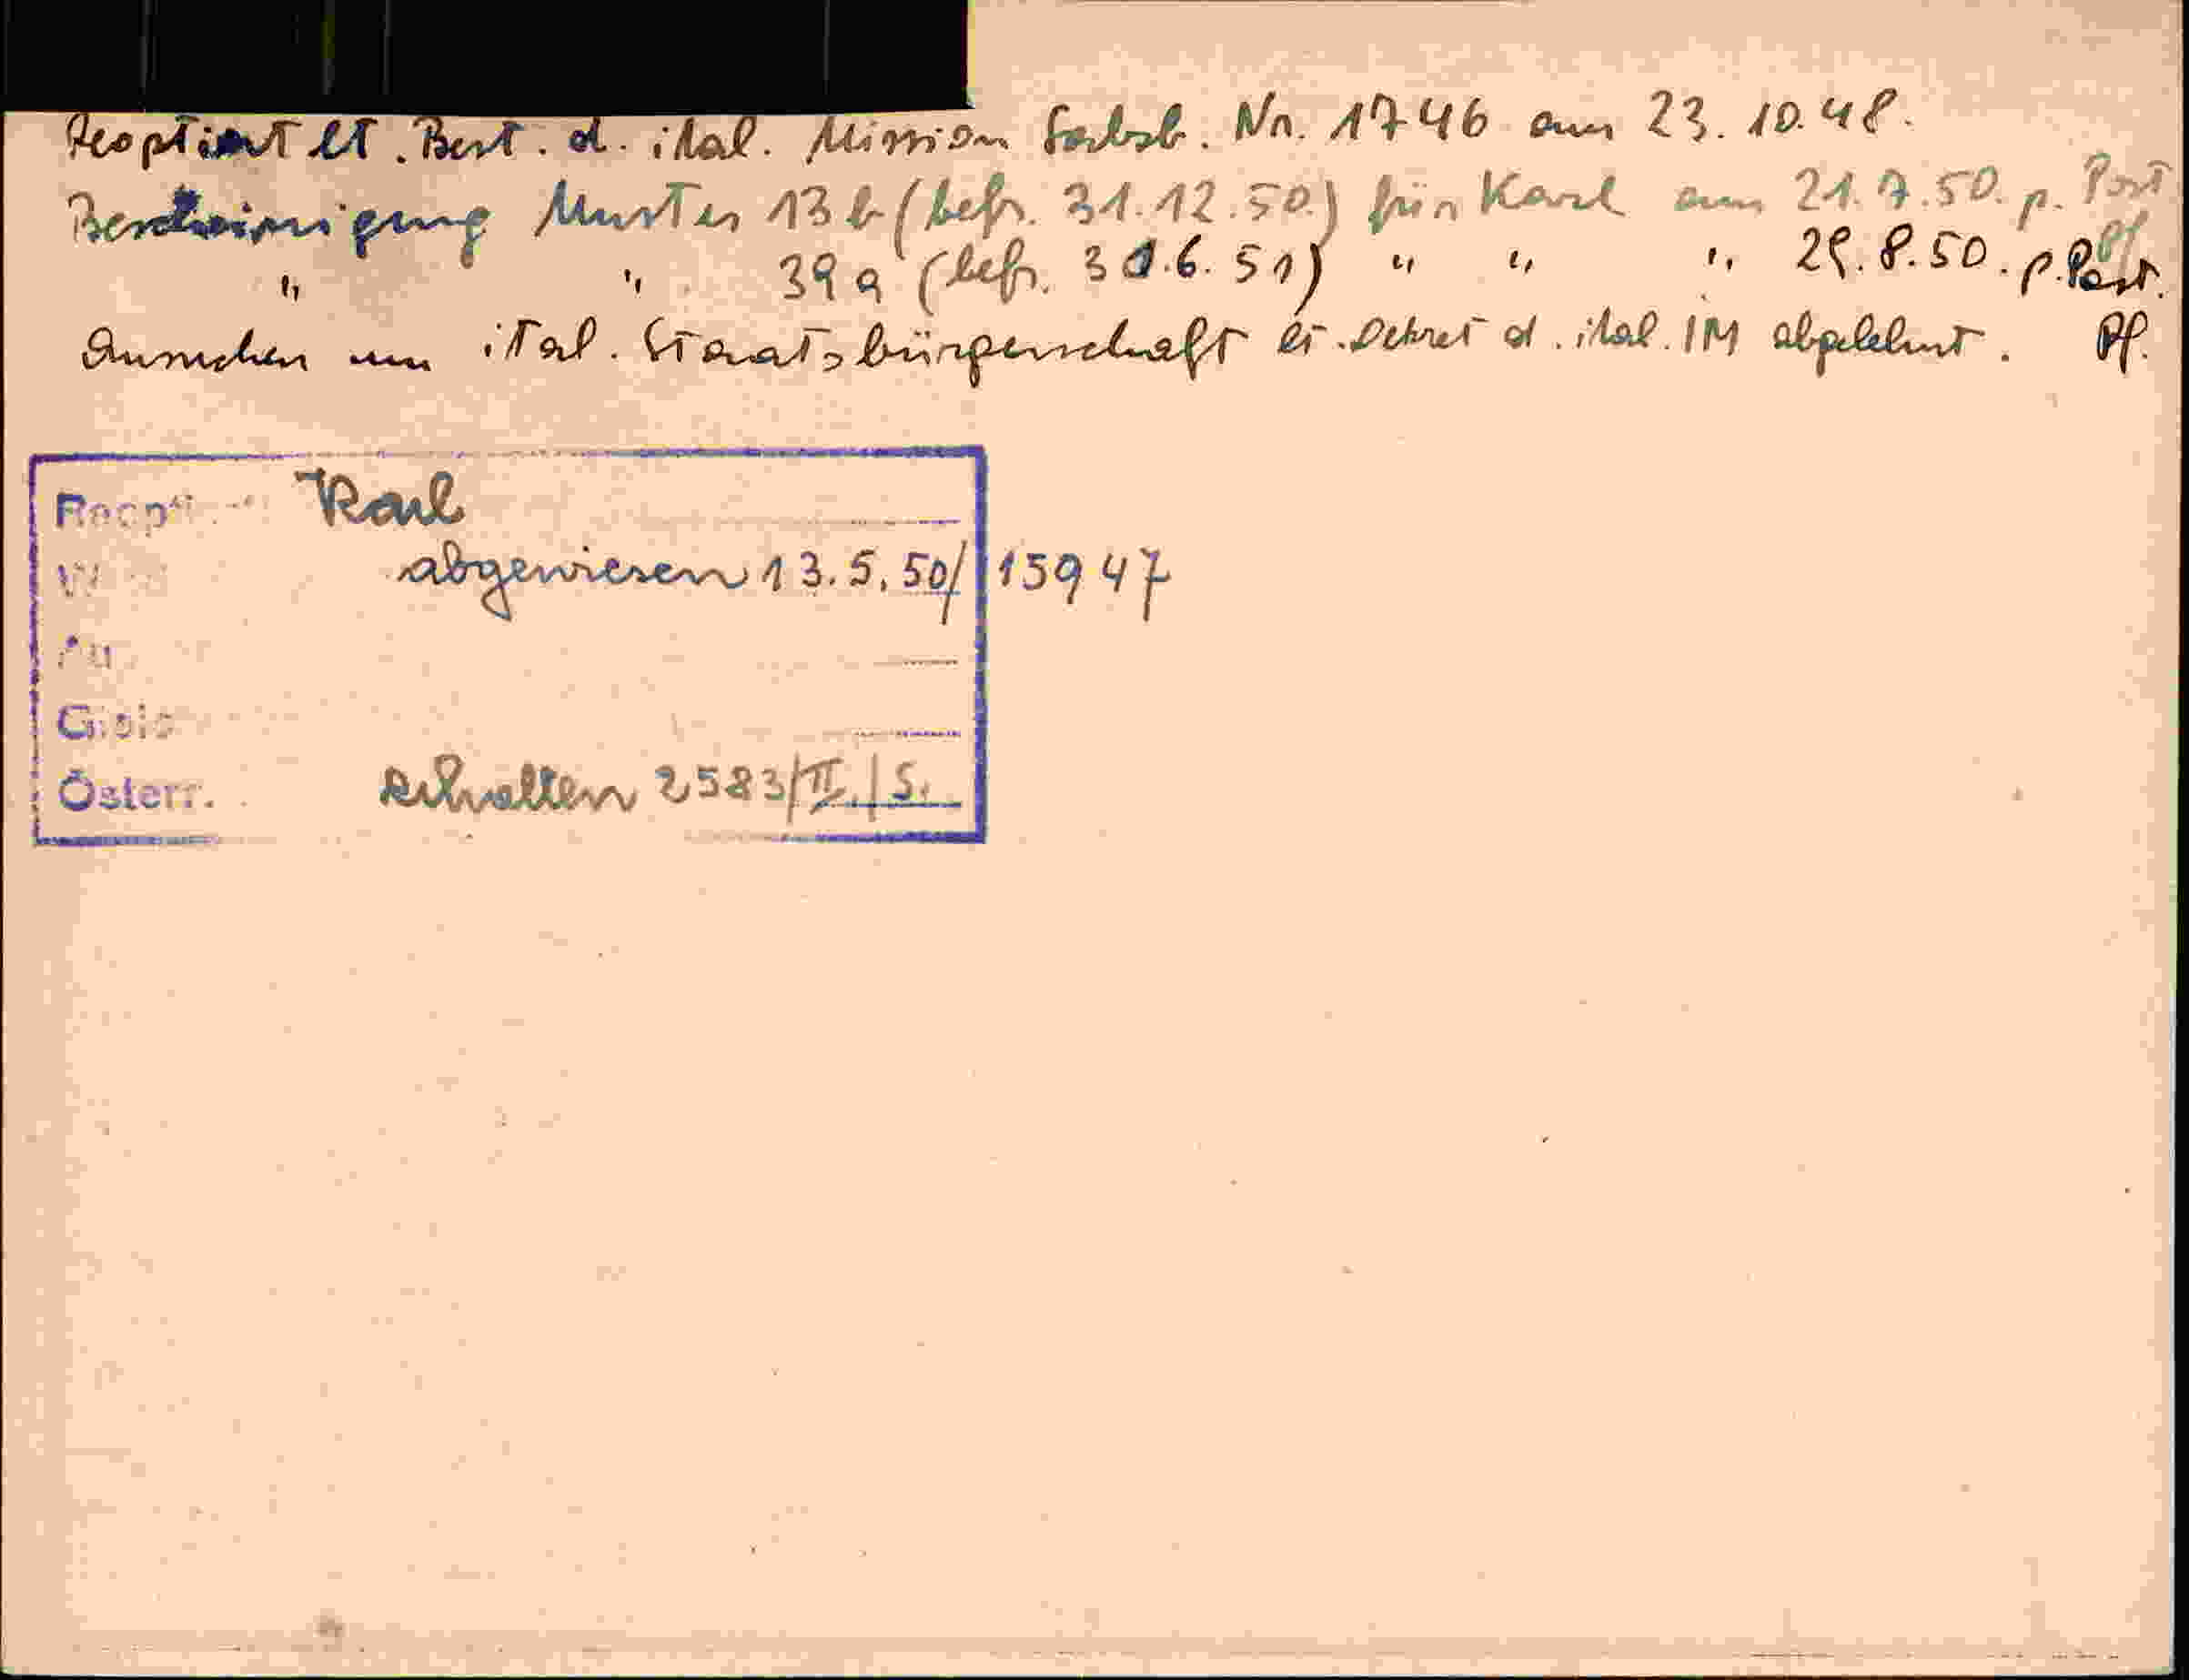 Reoptiert lt. Best. d. ital. Mission Salzb. Nr. 1746 am 23.10.48.
Bescheinigung Muster 13 b (befr. 31.12.50.) für Karl am 21.7.50. p. Post
" " 39 a (befr. 30.6.51) " " " 28.8.50. p. Post. Pf
Ansuchen um ital. Staatsbürgerschaft lt. Dekret d. ital. IM abgelehnt. Pf.
Karl
abgewiesen 13.5.50/15947
Österr. erhalten 2583/II./S.